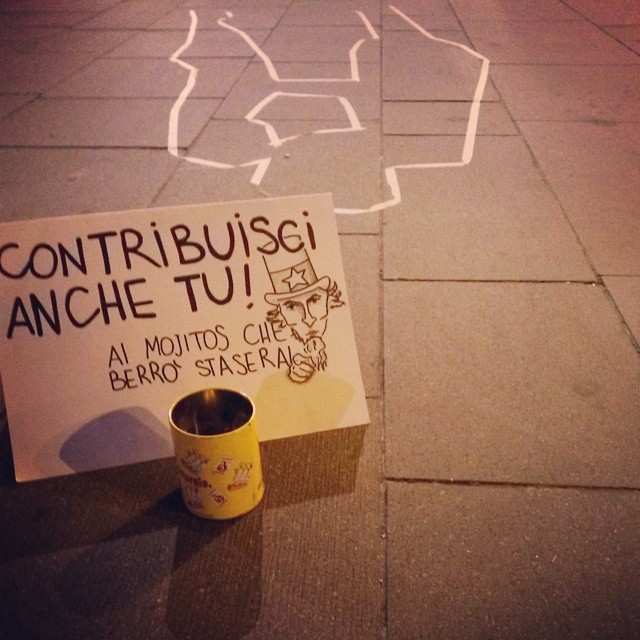 CONTRiBUiSCi
ANCHE TU!
AI MOJITOS CHE
BERRO' STASERA!